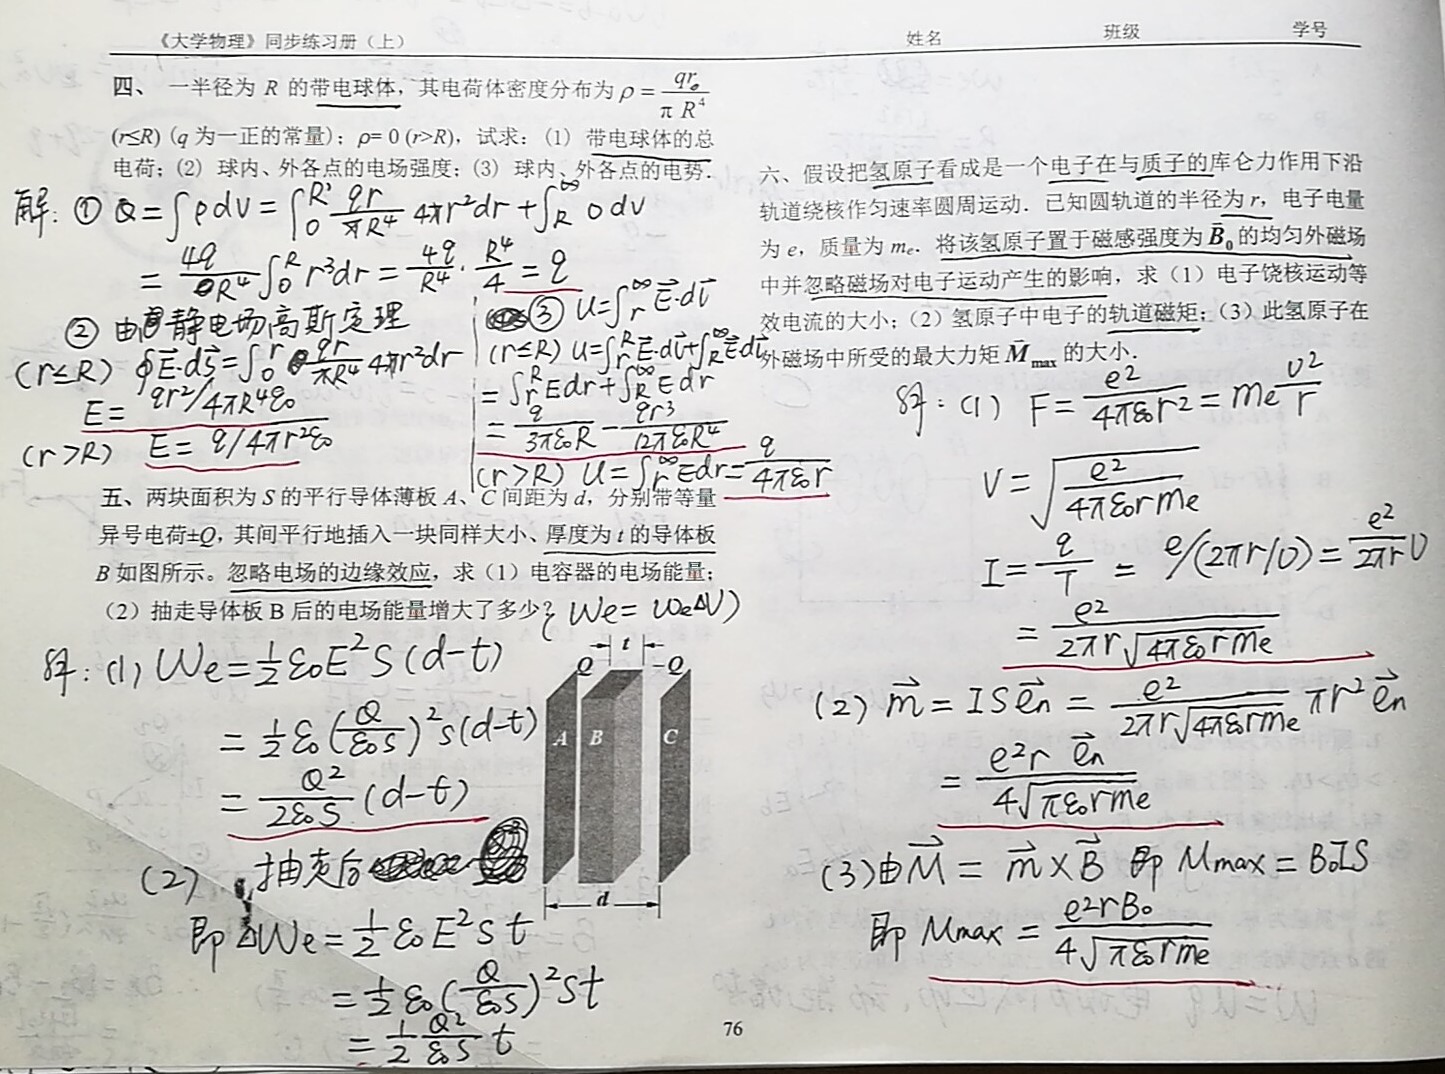 《大学物理》同步练习册（上）
姓名 班级 学号
四、 一半径为 R 的带电球体，其电荷体密度分布为 ρ = qr/πR⁴
(r≤R) (q 为一正的常量)；ρ= 0 (r>R)，试求：(1) 带电球体的总
电荷；(2) 球内、外各点的电场强度；(3) 球内、外各点的电势．
解：① Q = ∫ρdV = ∫₀ᴿ qr/πR⁴ 4πr²dr + ∫_R^∞ 0 dV
= 4q/R⁴ ∫₀ᴿ r³dr = 4q/R⁴ · R⁴/4 = q
② 由静电场高斯定理
(r≤R) ∮E⃗·dS⃗ = ∫₀ʳ qr/πR⁴ 4πr²dr
E = qr²/4πR⁴ε₀
(r>R) E = q/4πr²ε₀
③ U = ∫_r^∞ E⃗·dl⃗
(r≤R) U = ∫_r^R E⃗·dl⃗ + ∫_R^∞ E⃗·dl⃗
= ∫_r^R Edr + ∫_R^∞ Edr
= q/3πε₀R − qr³/12πε₀R⁴
(r>R) U = ∫_r^∞ Edr = q/4πε₀r
五、两块面积为 S 的平行导体薄板 A、C 间距为 d，分别带等量
异号电荷±Q，其间平行地插入一块同样大小、厚度为 t 的导体板
B 如图所示。忽略电场的边缘效应，求（1）电容器的电场能量；
（2）抽走导体板 B 后的电场能量增大了多少？
(We = weΔV)
解：(1) We = ½ε₀E²S(d−t)
= ½ε₀(Q/ε₀S)²S(d−t)
= Q²/2ε₀S (d−t)
(2) 抽走后
即ΔWe = ½ε₀E²St
= ½ε₀(Q/ε₀S)²St
= ½ Q²/ε₀S t
Q t -Q
A B C
d
六、假设把氢原子看成是一个电子在与质子的库仑力作用下沿
轨道绕核作匀速率圆周运动．已知圆轨道的半径为 r，电子电量
为 e，质量为 mₑ．将该氢原子置于磁感强度为B⃗₀的均匀外磁场
中并忽略磁场对电子运动产生的影响，求（1）电子饶核运动等
效电流的大小；（2）氢原子中电子的轨道磁矩；（3）此氢原子在
外磁场中所受的最大力矩 M⃗max 的大小．
解：(1) F = e²/4πε₀r² = me v²/r
V = √(e²/4πε₀rme)
I = q/T = e/(2πr/υ) = e²/2πr υ
= e²/2πr√(4πε₀rme)
(2) m⃗ = ISe⃗n = e²/2πr√(4πε₀rme) πr² e⃗n
= e²r e⃗n/4√(πε₀rme)
(3) 由M⃗ = m⃗×B⃗ 即 Mmax = B₀IS
即 Mmax = e²rB₀/4√(πε₀rme)
76